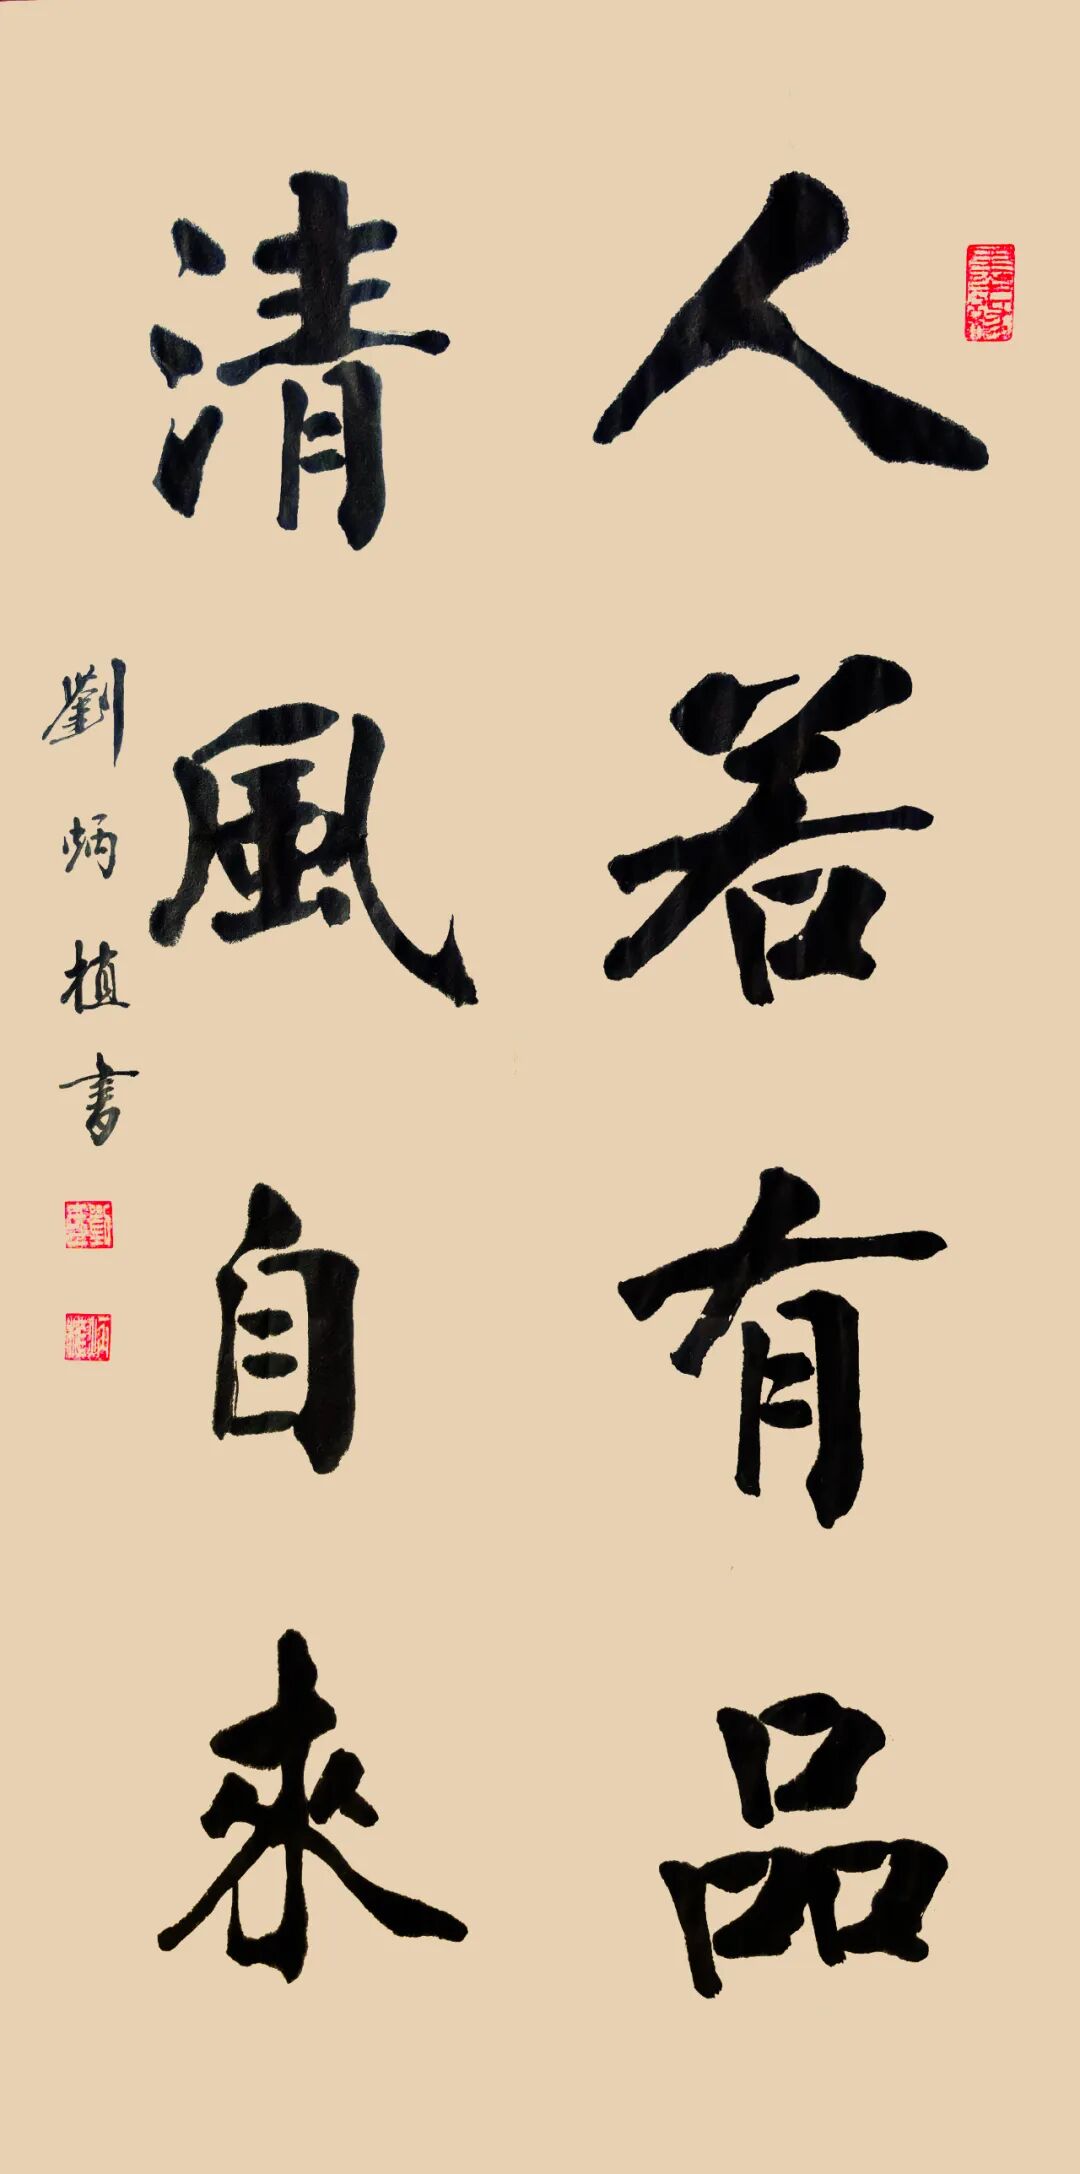 人若有品
清風自來
劉炳植書